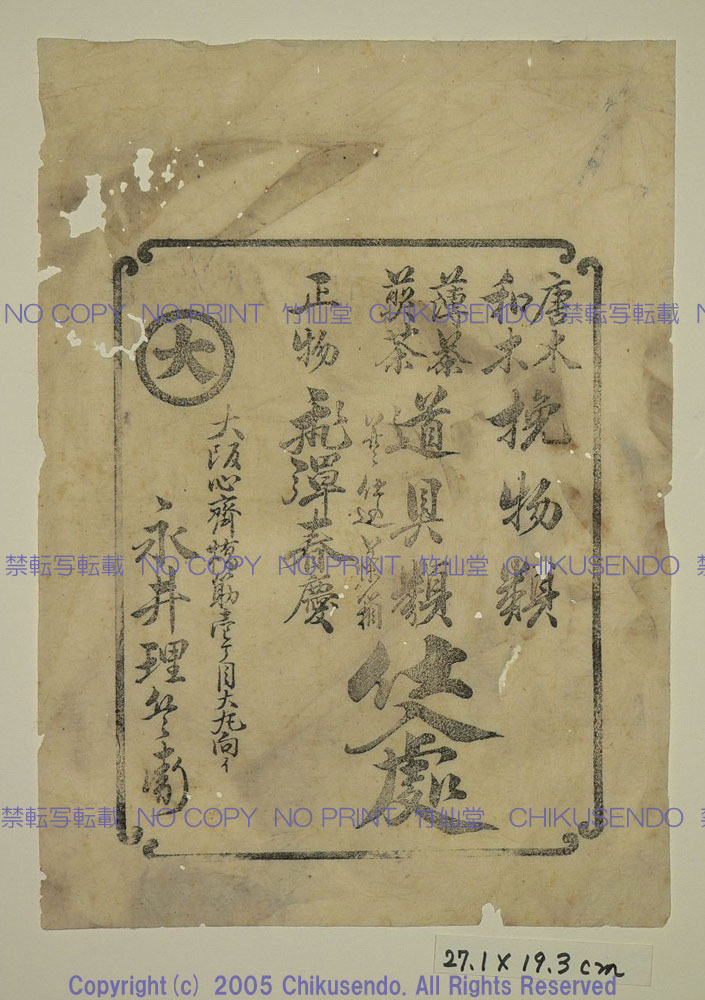 唐木
和木
挽物類
薄茶
煎茶
道具類
仕入處
正物
飛彈春慶
大
大阪心齊橋筋壱丁目大丸向イ
永井理兵衞
NO COPY NO PRINT 竹仙堂 CHIKUSENDO 禁転写転載
禁転写転載 NO COPY NO PRINT 竹仙堂 CHIKUSENDO 禁
禁転写転載 NO COPY NO PRINT 竹仙堂 CHIKUSENDO 禁
27.1 X 19.3 cm
Copyright (c) 2005 Chikusendo. All Rights Reserved